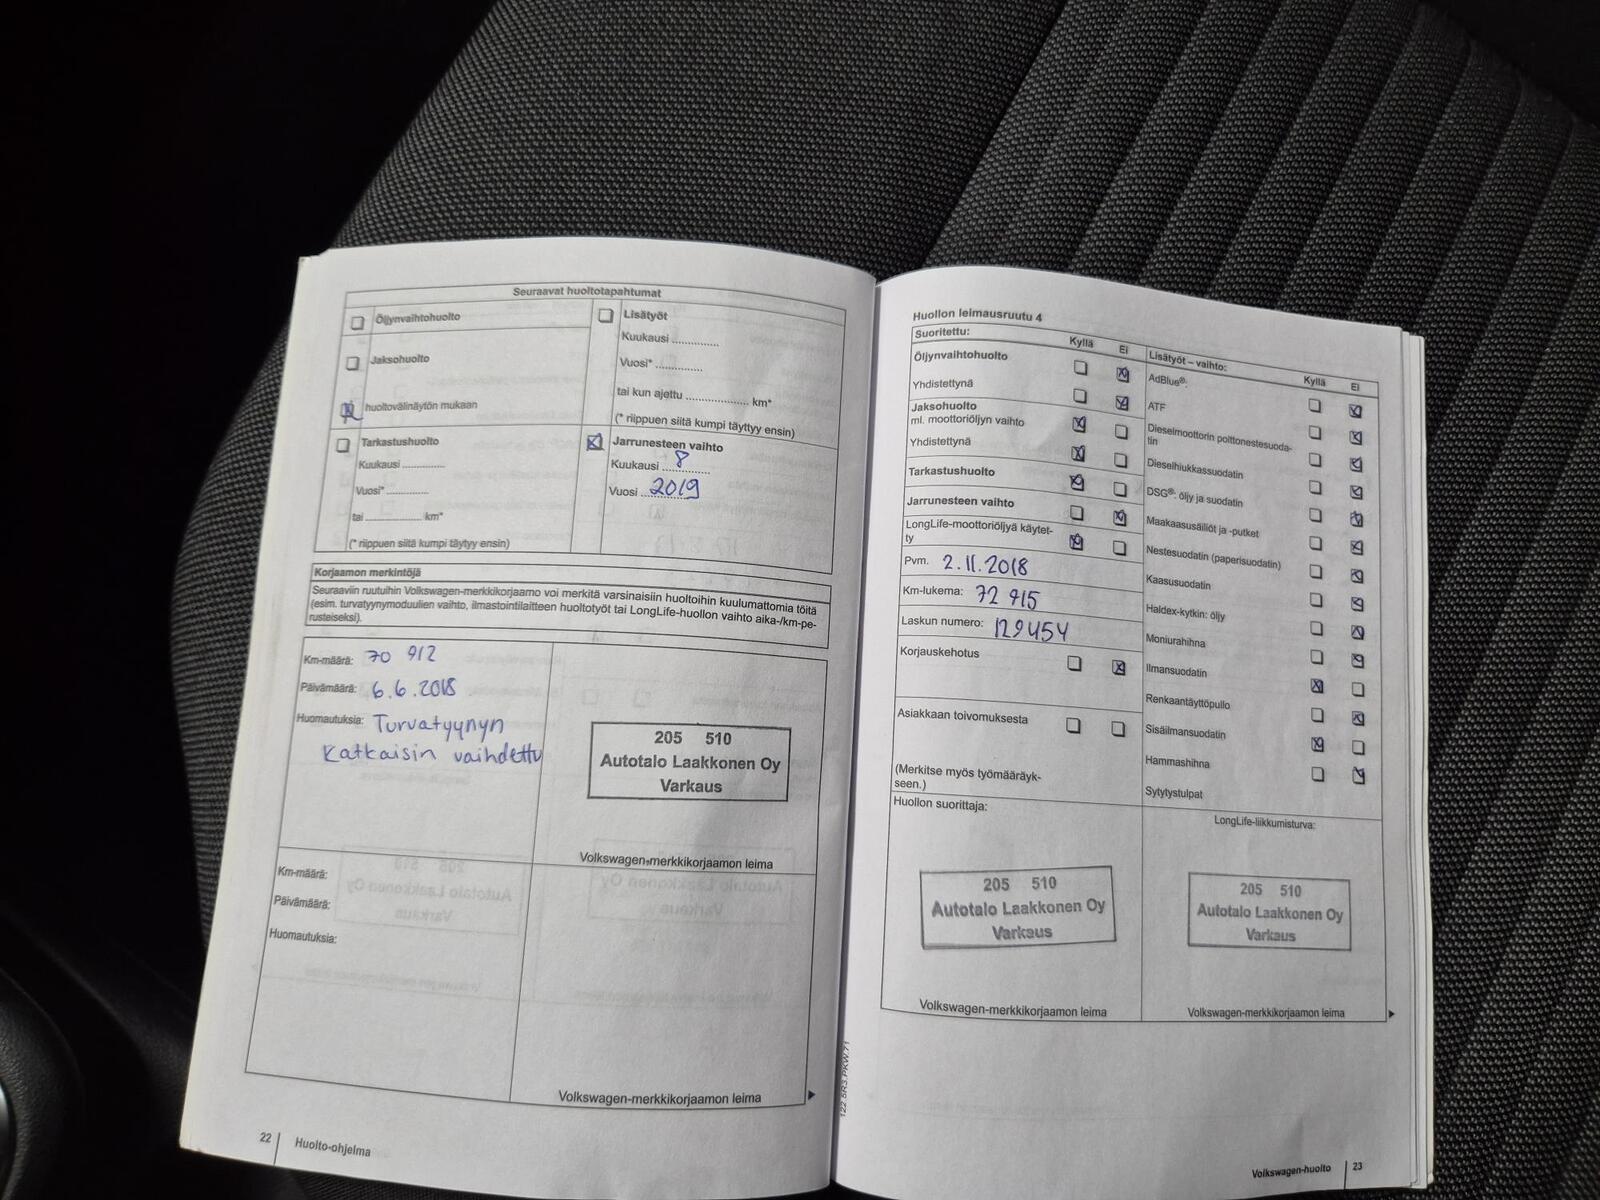 Seuraavat huoltotapahtumat
Öljynvaihtohuolto
Jaksohuolto
huoltovälinäytön mukaan
Lisätyöt
Kuukausi ..............
Vuosi* ..............
tai kun ajettu ................... km*
(* riippuen siitä kumpi täyttyy ensin)
Tarkastushuolto
Kuukausi .............
Vuosi* .............
tai ................. km*
(* riippuen siitä kumpi täytyy ensin)
Jarrunesteen vaihto
Kuukausi 8
Vuosi 2019
Korjaamon merkintöjä
Seuraaviin ruutuihin Volkswagen-merkkikorjaamo voi merkitä varsinaisiin huoltoihin kuulumattomia töitä
(esim. turvatyynymoduulien vaihto, ilmastointilaitteen huoltotyöt tai LongLife-huollon vaihto aika-/km-pe-
rusteiseksi).
Km-määrä: 70 912
Päivämäärä: 6.6.2018
Huomautuksia: Turvatyynyn
katkaisin vaihdettu
205 510
Autotalo Laakkonen Oy
Varkaus
Volkswagen-merkkikorjaamon leima
Km-määrä:
Päivämäärä:
Huomautuksia:
Volkswagen-merkkikorjaamon leima
22 Huolto-ohjelma
Huollon leimausruutu 4
Suoritettu:
Kyllä Ei
Öljynvaihtohuolto
Yhdistettynä
Jaksohuolto
ml. moottoriöljyn vaihto
Yhdistettynä
Tarkastushuolto
Jarrunesteen vaihto
LongLife-moottoriöljyä käytet-
ty
Pvm. 2.11.2018
Km-lukema: 72 915
Laskun numero: 129454
Korjauskehotus
Asiakkaan toivomuksesta
(Merkitse myös työmääräyk-
seen.)
Lisätyöt – vaihto:
Kyllä Ei
AdBlue®:
ATF
Dieselmoottorin polttonestesuoda-
tin
Dieselhiukkassuodatin
DSG®: öljy ja suodatin
Maakaasusäiliöt ja -putket
Nestesuodatin (paperisuodatin)
Kaasusuodatin
Haldex-kytkin: öljy
Moniurahihna
Ilmansuodatin
Renkaantäyttöpullo
Sisäilmansuodatin
Hammashihna
Sytytystulpat
Huollon suorittaja:
205 510
Autotalo Laakkonen Oy
Varkaus
Volkswagen-merkkikorjaamon leima
LongLife-liikkumisturva:
205 510
Autotalo Laakkonen Oy
Varkaus
Volkswagen-merkkikorjaamon leima
122.5R3.PKW.71
Volkswagen-huolto 23